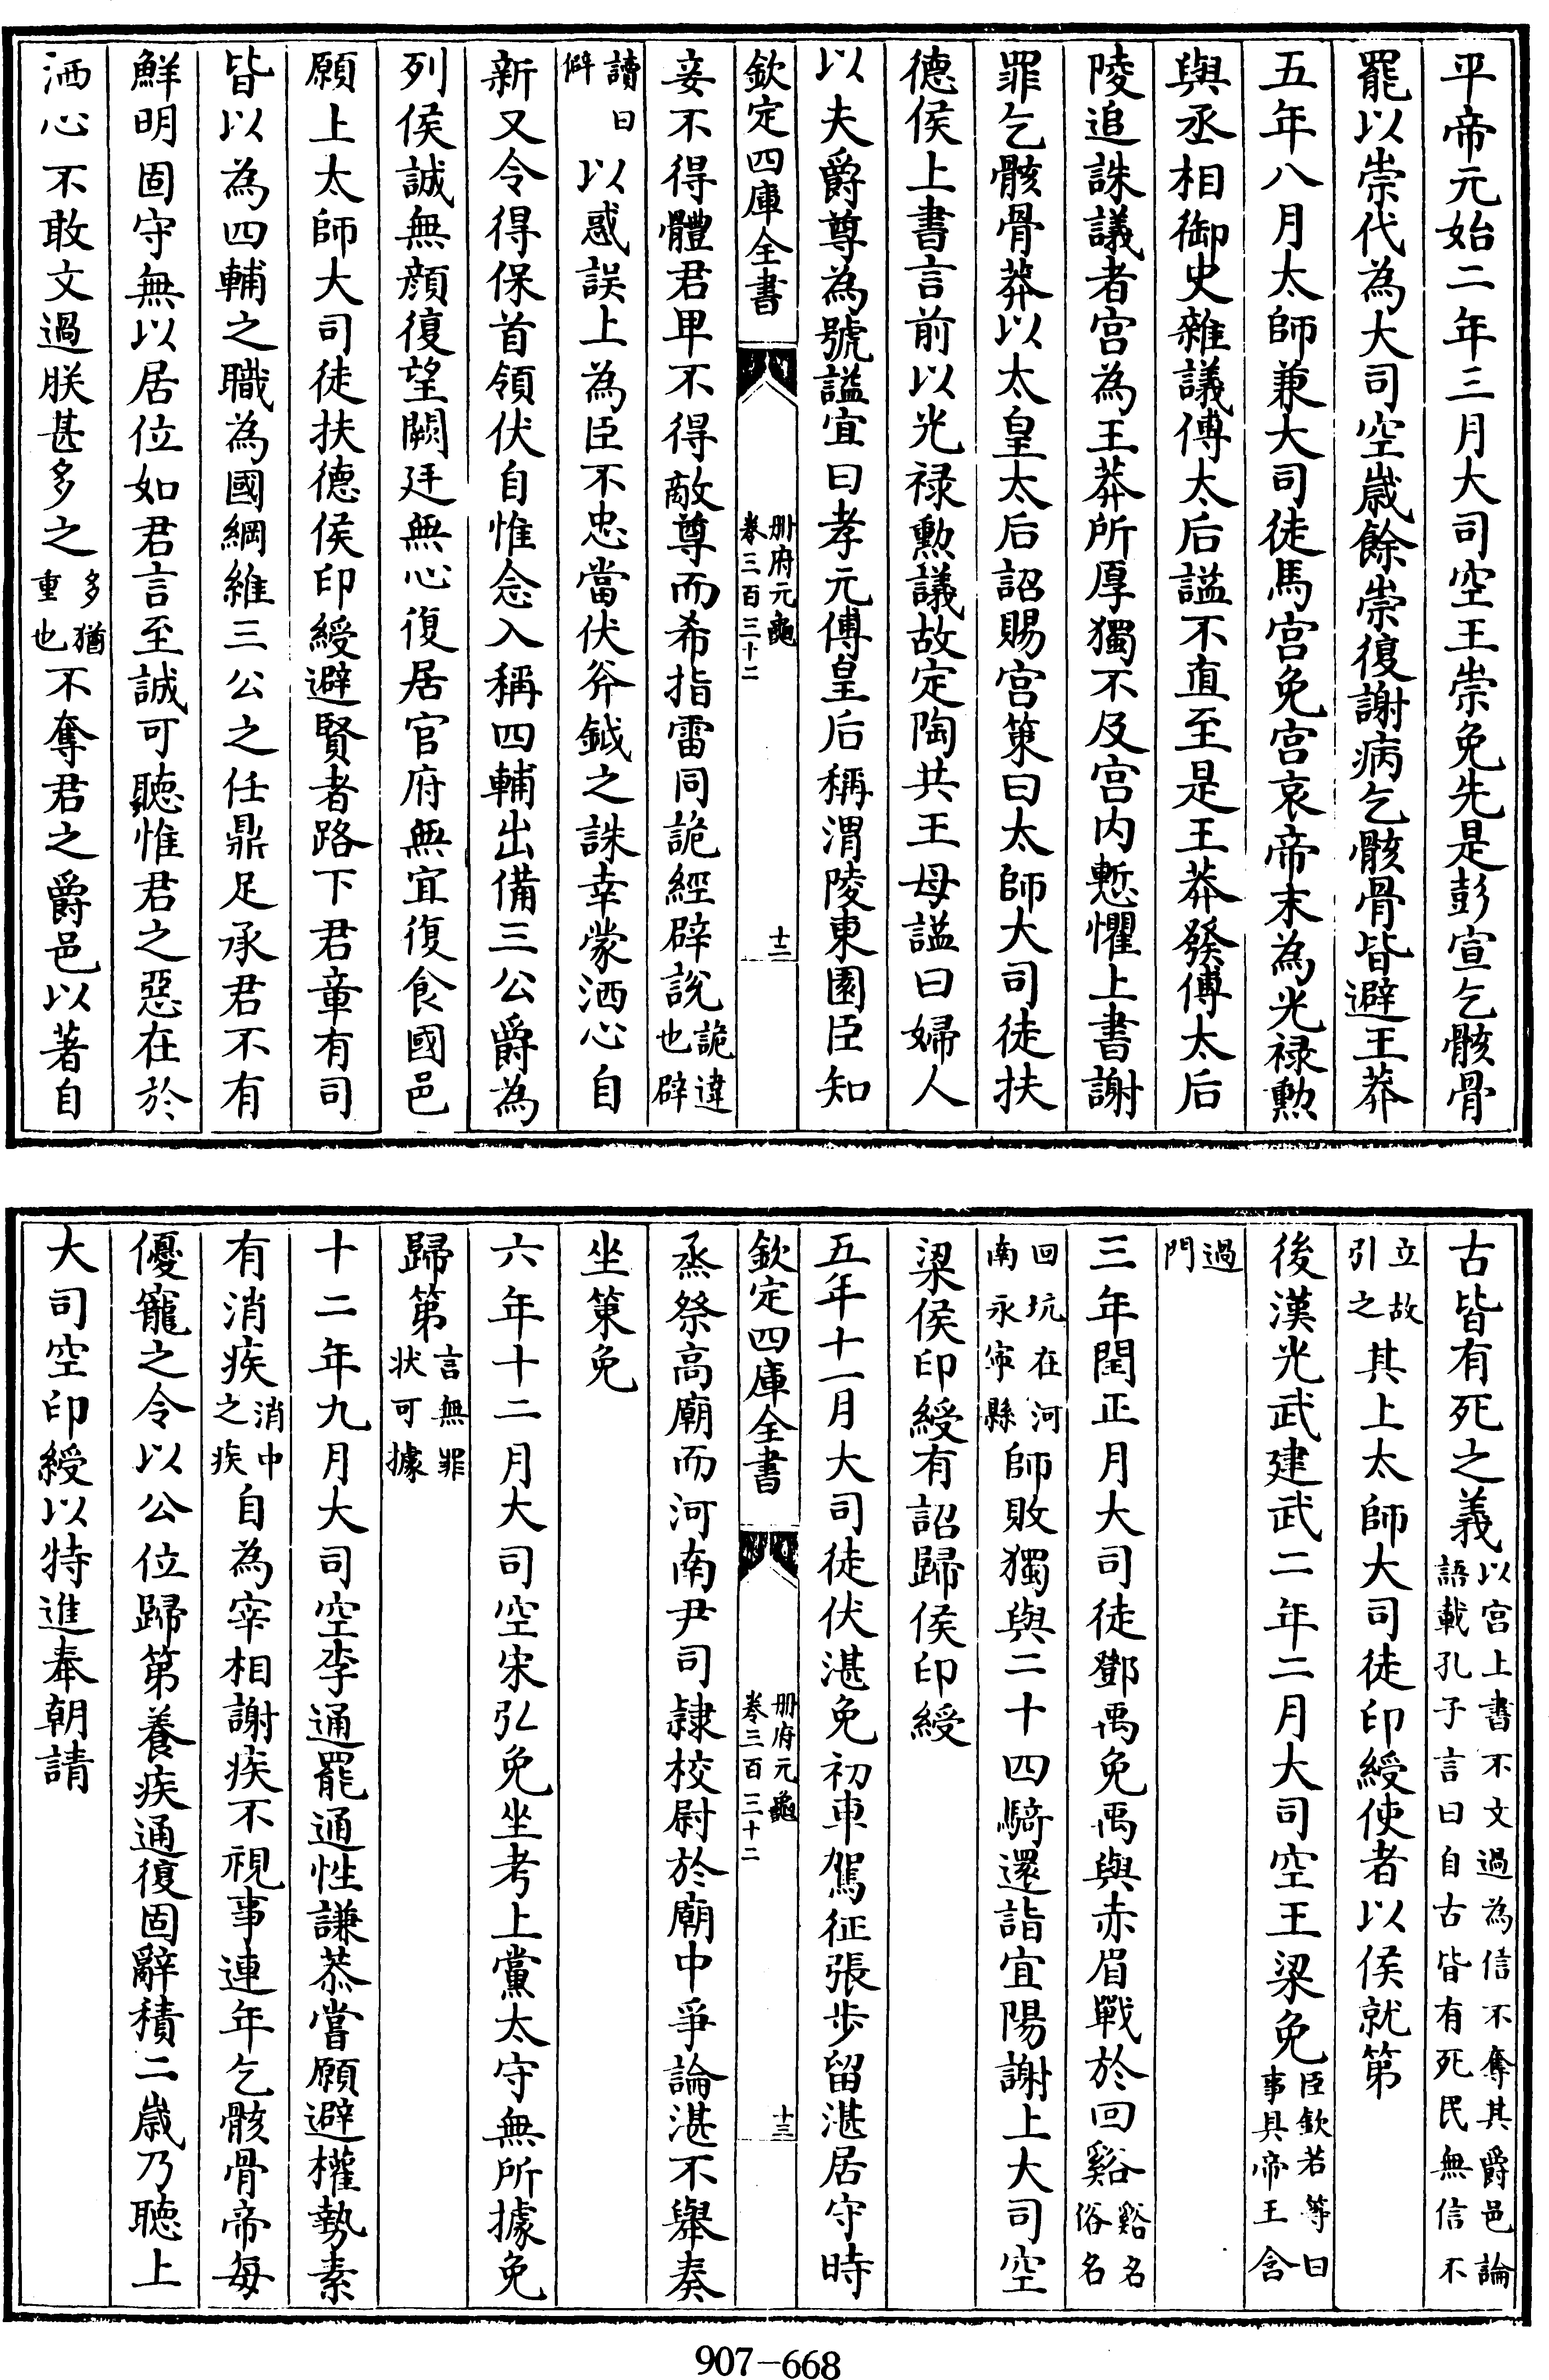 平帝元始二年三月大司空王崇免先是彭宣乞骸骨
罷以崇代為大司空嵗餘崇復謝病乞骸骨皆避王莽
五年八月太師兼大司徒馬宫免宫哀帝末為光禄勲
與丞相御史雜議傅太后謚不直至是王莽發傅太后
陵追誅議者宫為王莽所厚獨不及宫内慙懼上書謝
罪乞骸骨莽以太皇太后詔賜宫策曰太師大司徒扶
德侯上書言前以光禄勲議故定陶共王母謚曰婦人
以夫爵尊為號謚宜曰孝元傅皇后稱渭陵東園臣知
欽定四庫全書
册府元龜
卷三百三十二
十二
妾不得體君卑不得敵尊而希指雷同詭經辟說詭違
也辟
讀曰
僻以惑誤上為臣不忠當伏斧鉞之誅幸蒙洒心自
新又令得保首領伏自惟念入稱四輔出備三公爵為
列侯誠無顔復望闕廷無心復居官府無宜復食國邑
願上太師大司徒扶德侯印綬避賢者路下君章有司
皆以為四輔之職為國綱維三公之任鼎足承君不有
鮮明固守無以居位如君言至誠可聽惟君之惡在於
洒心不敢文過朕甚多之多猶
重也不奪君之爵邑以著自
古皆有死之義以宫上書不文過為信不奪其爵邑論
語載孔子言曰自古皆有死民無信不
立故
引之其上太師大司徒印綬使者以侯就第
後漢光武建武二年二月大司空王梁免臣欽若等曰
事具帝王含
過
門
三年閏正月大司徒鄧禹免禹與赤眉戰於回谿谿名
俗名
回坑在河
南永寜縣師敗獨與二十四騎還詣宜陽謝上大司空
梁侯印綬有詔歸侯印綬
五年十一月大司徒伏湛免初車駕征張歩留湛居守時
欽定四庫全書
册府元龜
卷三百三十二
十三
烝祭高廟而河南尹司隷校尉於廟中爭論湛不舉奏
坐策免
六年十二月大司空宋弘免坐考上黨太守無所據免
歸第言無罪
狀可據
十二年九月大司空李通罷通性謙恭嘗願避權勢素
有消疾消中
之疾自為宰相謝疾不視事連年乞骸骨帝每
優寵之令以公位歸第養疾通復固辭積二嵗乃聽上
大司空印綬以特進奉朝請
907-668